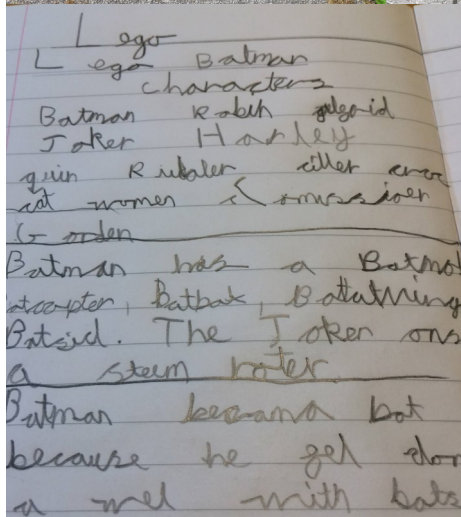 Lego
Lego Batman
characters
Batman Robin
Joker Harley
quin Ridler ciller croc
cat women Comissioner
Gorden
Batman has a Batmo
Batbat, Batwing
The Joker ons
a steem
Batman became bat
because he gel
a wel with bats